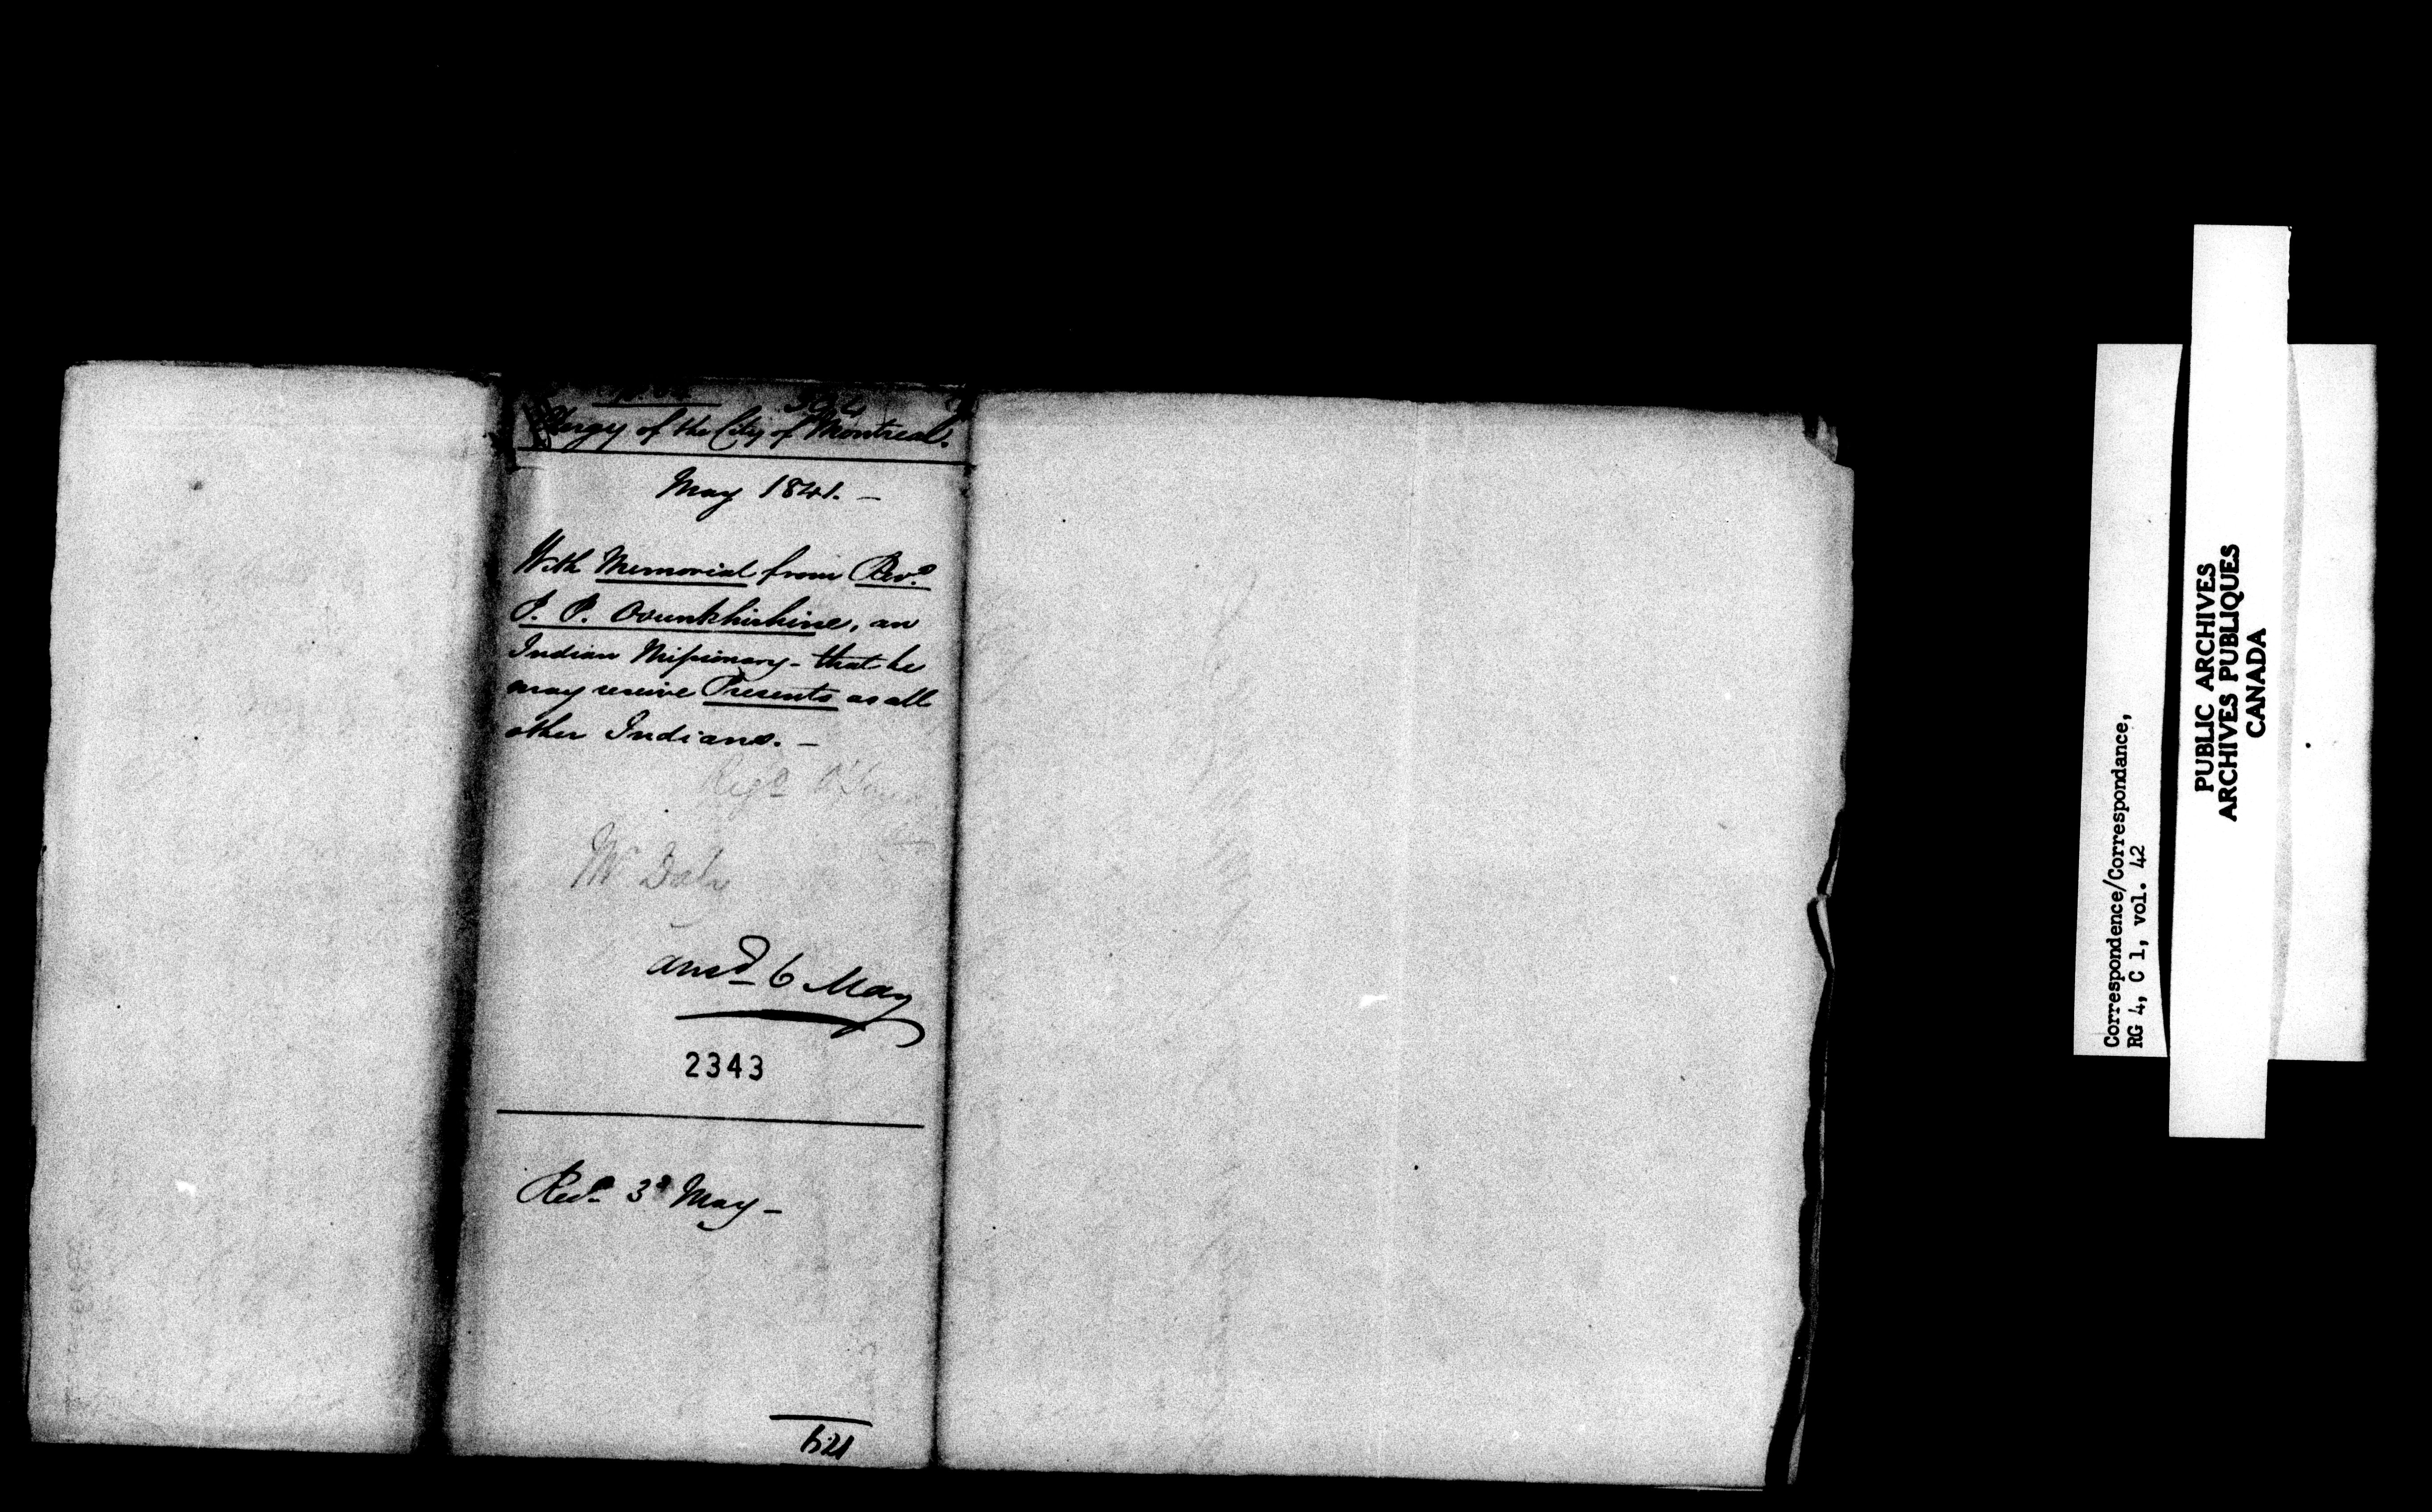 Clergy of the City of Montreal.
May 1841. –
With Memorial from Revd.
P. P. Osunkhirhine, an
Indian Missionary – that he
may receive Presents as all
other Indians. –
Mr Daly
ansd 6 May
2343
Recd. 3d May –
Correspondence/Correspondance,
RG 4, C 1, vol. 42
PUBLIC ARCHIVES
ARCHIVES PUBLIQUES
CANADA